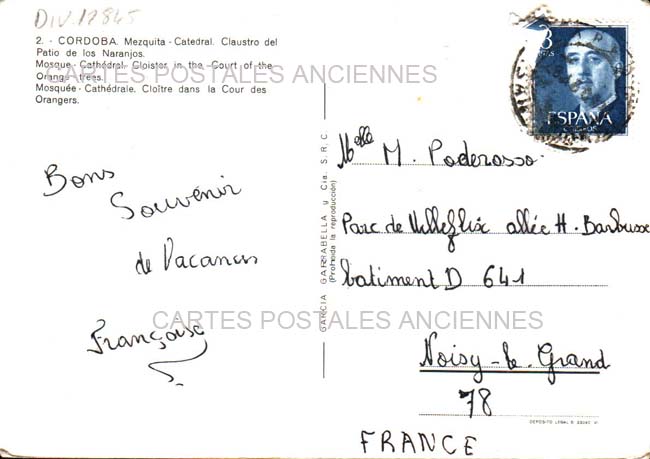 DIV.12845
2. - CORDOBA. Mezquita - Catedral. Claustro del
Patio de los Naranjos.
Mosque - Cathédral. Cloister in the Court of the
Orange trees.
Mosquée - Cathédrale. Cloître dans la Cour des
Orangers.
CARTES POSTALES ANCIENNES
Bons
Souvenir
de Vacances
Françoise
GARCIA GARRABELLA y Cia. S.R.C
(Prohibida la reproducción)
ESPAÑA
CORREOS
Melle M. Poderosso.
Parc de Villeflix allée H. Barbusse
batiment D 641
Noisy-le-Grand
78
FRANCE
DEPOSITO LEGAL B.
CARTES POSTALES ANCIENNES